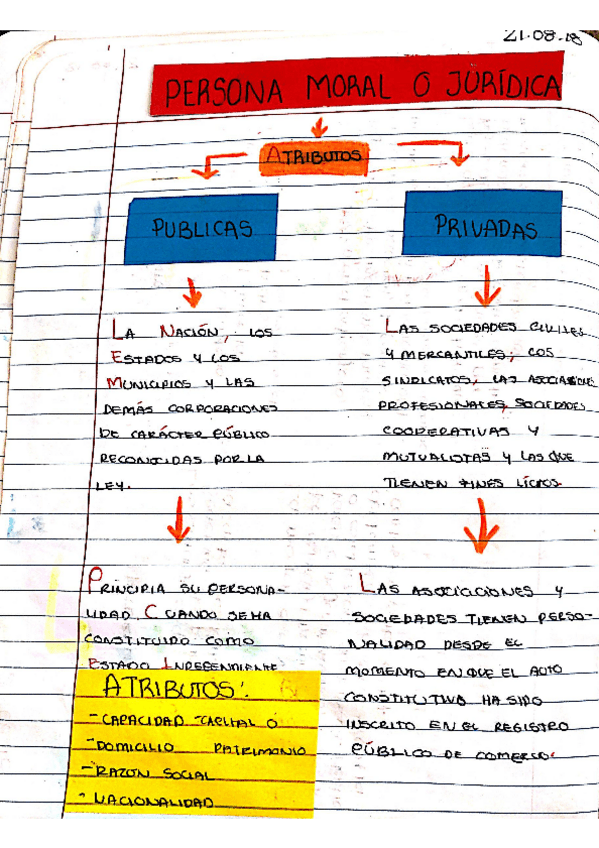 21.08.18
PERSONA MORAL O JURÍDICA
ATRIBUTOS
PUBLICAS
LA NACIÓN, LOS
ESTADOS Y LOS
MUNICIPIOS Y LAS
DEMÁS CORPORACIONES
DE CARÁCTER PÚBLICO
RECONOCIDAS POR LA
LEY.
PRINCIPIA SU PERSONA-
LIDAD CUANDO SE HA
CONSTITUIDO COMO
ESTADO INDEPENDIENTE
PRIVADAS
LAS SOCIEDADES CIVILES
Y MERCANTILES; LOS
SINDICATOS, LAS ASOCIACIONES
PROFESIONALES, SOCIEDADES
COOPERATIVAS Y
MUTUALISTAS Y LAS QUE
TIENEN FINES LÍCITOS.
LAS ASOCIACIONES Y
SOCIEDADES TIENEN PERSO-
NALIDAD DESDE EL
MOMENTO EN QUE EL ACTO
CONSTITUTIVO HA SIDO
INSCRITO EN EL REGISTRO
PÚBLICO DE COMERCIO.
ATRIBUTOS:
-CAPACIDAD -CAPITAL Ó
-DOMICILIO PATRIMONIO
-RAZON SOCIAL
-NACIONALIDAD